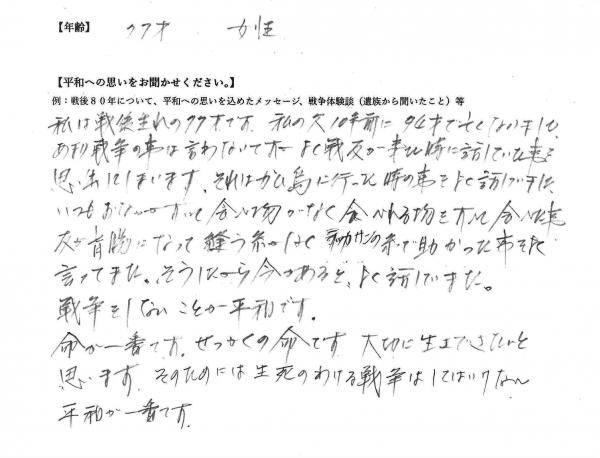 【年齢】 77才 女性
【平和への思いをお聞かせください。】
例：戦後８０年について、平和への思いを込めたメッセージ、戦争体験談（遺族から聞いたこと）等
私は戦後生れの77才です。私の父10年前に94才で亡くなりました
あまり戦争の事は言わないですが よく戦友が来た時に話していた事を
思い出してしまいます。それはガ島に行った時の事をよく話していました
いつもおなかがすいて食べ物がなく食べれる物をすべて食べた事
友が盲腸になって縫う糸がなく 糸で助かった事をよく
言ってました。そうしたから今があると、よく話してました。
戦争をしないことが平和です。
命が一番です。せっかくの命です 大切に生きて いきたいと
思います。そのためには生死のわける戦争はしてはいけない
平和が一番です。